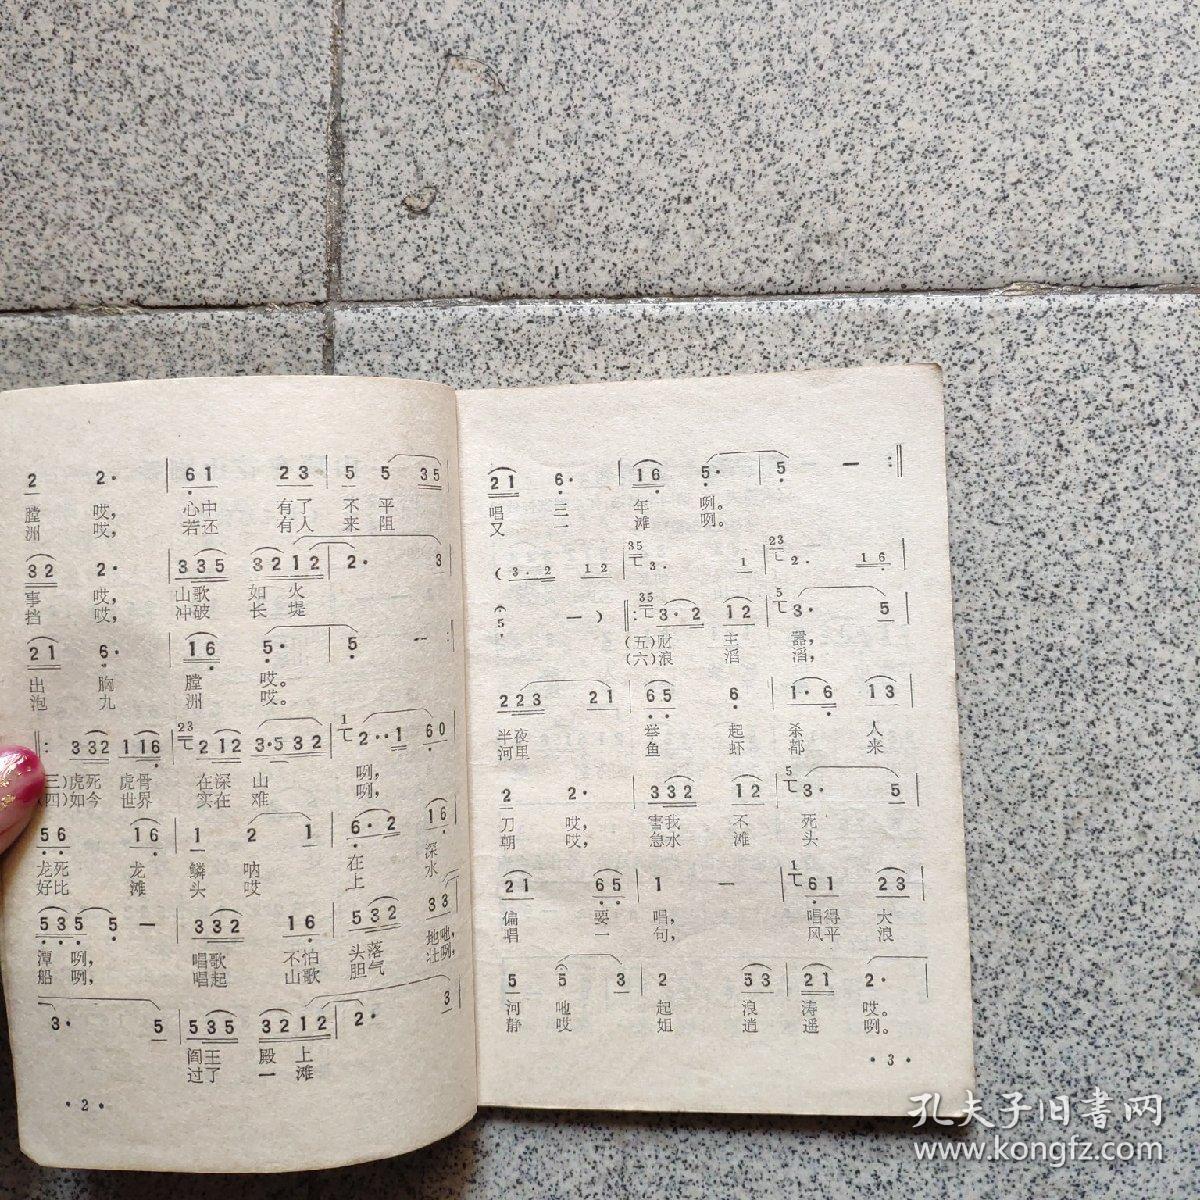 2 2· | 6 1 2 3 | 5 5 3 5
膛 哎, 心中 有了 不 平
洲 哎, 若还 有人 来 阻
3 2 2· | 3 3 5 3 2 1 2 | 2· 3 |
事 哎, 山歌 如 火
挡 哎, 冲破 长 堤
2 1 6· | 1 6 5· | 5 — :
出 胸 膛 哎。
泡 九 洲 哎。
: 3 3 2 1 1 6 | 2 1 2 3·5 3 2 | 2··1 6 0
(三)虎死 虎骨 在深 山 咧,
(四)如今 世界 实在 难 咧,
5 6 1 6 | 1 2 1 | 6·2 1 6
龙死 龙 鳞 呐 在 深
好比 滩 头 哎 上 水
5 3 5 5 — | 3 3 2 1·6 | 5 3 2 3 3
潭 咧, 唱歌 不怕 头落 地吔,
船 咧, 唱起 山歌 胆气 壮咧,
3· 5 | 5 3 5 3 2 1 2 | 2· 3 |
阎王 殿 上
过了 一 滩
· 2 ·
2 1 6· | 1 6 5· | 5 — :‖
唱 三 年 咧。
又 一 滩 咧。
( 3·2 1 2 | 35 3· 1 | 23 2· 1 6 |
5· — ) ‖: 35 3·2 1 2 | 5 3· 5 |
(五)财 主 嚣,
(六)浪 滔 滔,
2 2 3 2 1 | 6 5 6 | 1·6 1 3 |
半夜 举 起 杀 人
河里 鱼 虾 都 来
2 2· | 3 3 2 1 2 | 5 3· 5 |
刀 哎, 害我 不 死
朝 哎, 急水 滩 头
2 1 6 5 | 1 — | 1 6 1 2 3 |
偏 要 唱, 唱得 大
唱 一 句, 风平 浪
5 5 3 | 2 5 3 | 2 1 2· |
河 吔 起 浪 涛 哎。
静 哎 姐 逍 遥 咧。
· 3 ·
孔夫子旧書网
www.kongfz.com